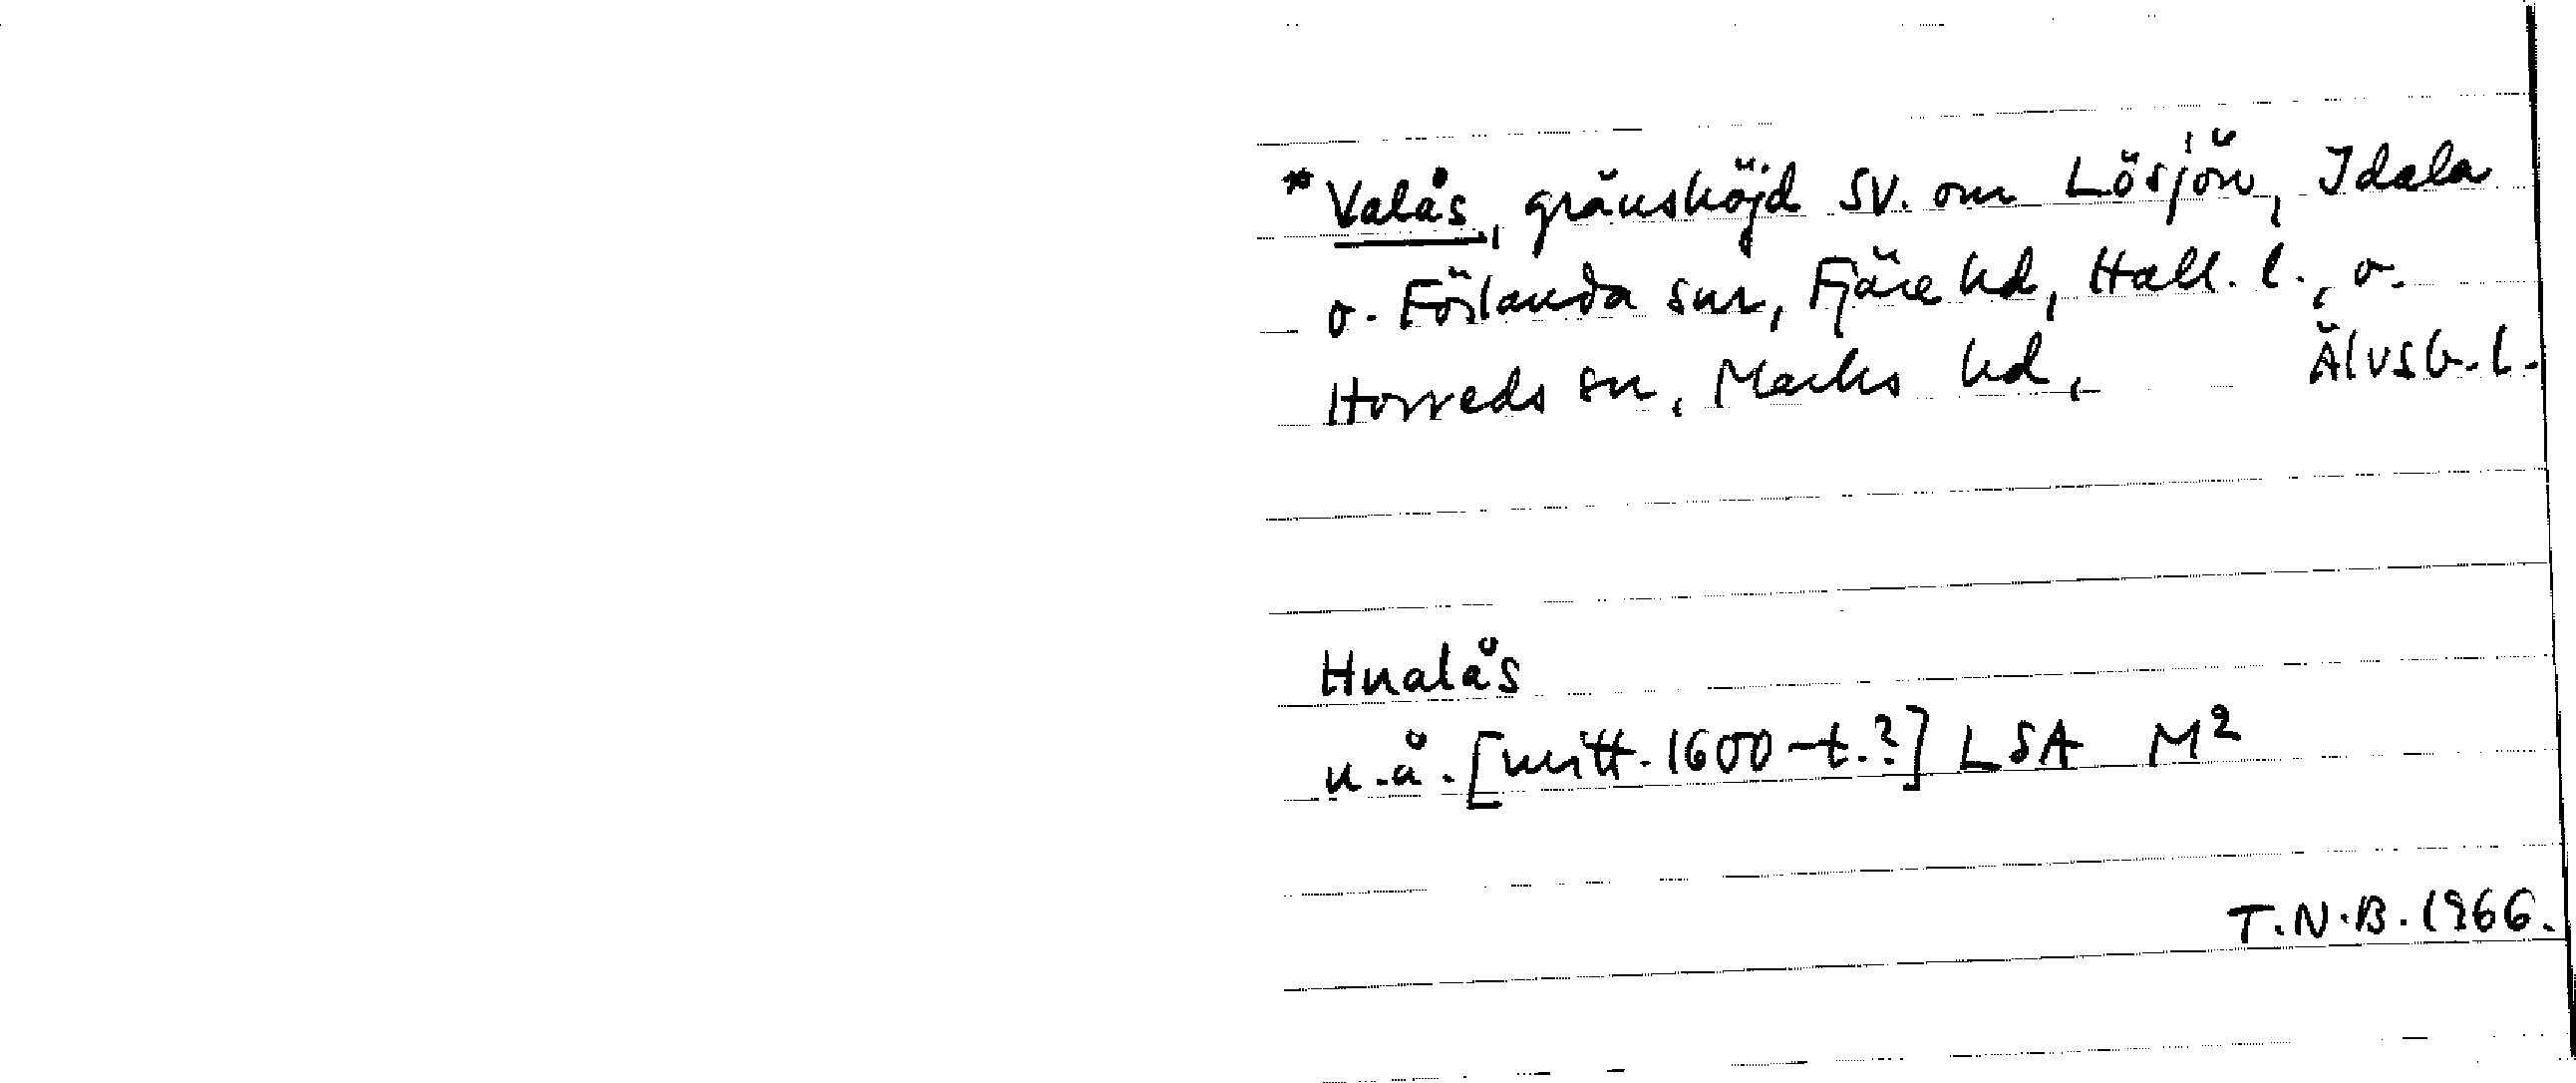 * Valås, gränshöjd SV. om Lösjön, Idala
o. Förlanda snr, Fjäre hd, Hall. l., o.
Horreds sn, Marks hd, Älvsb. l.
Hualås
u.å. [mitt. 1600-t.?] LSA M²
T.N.B. 1966.